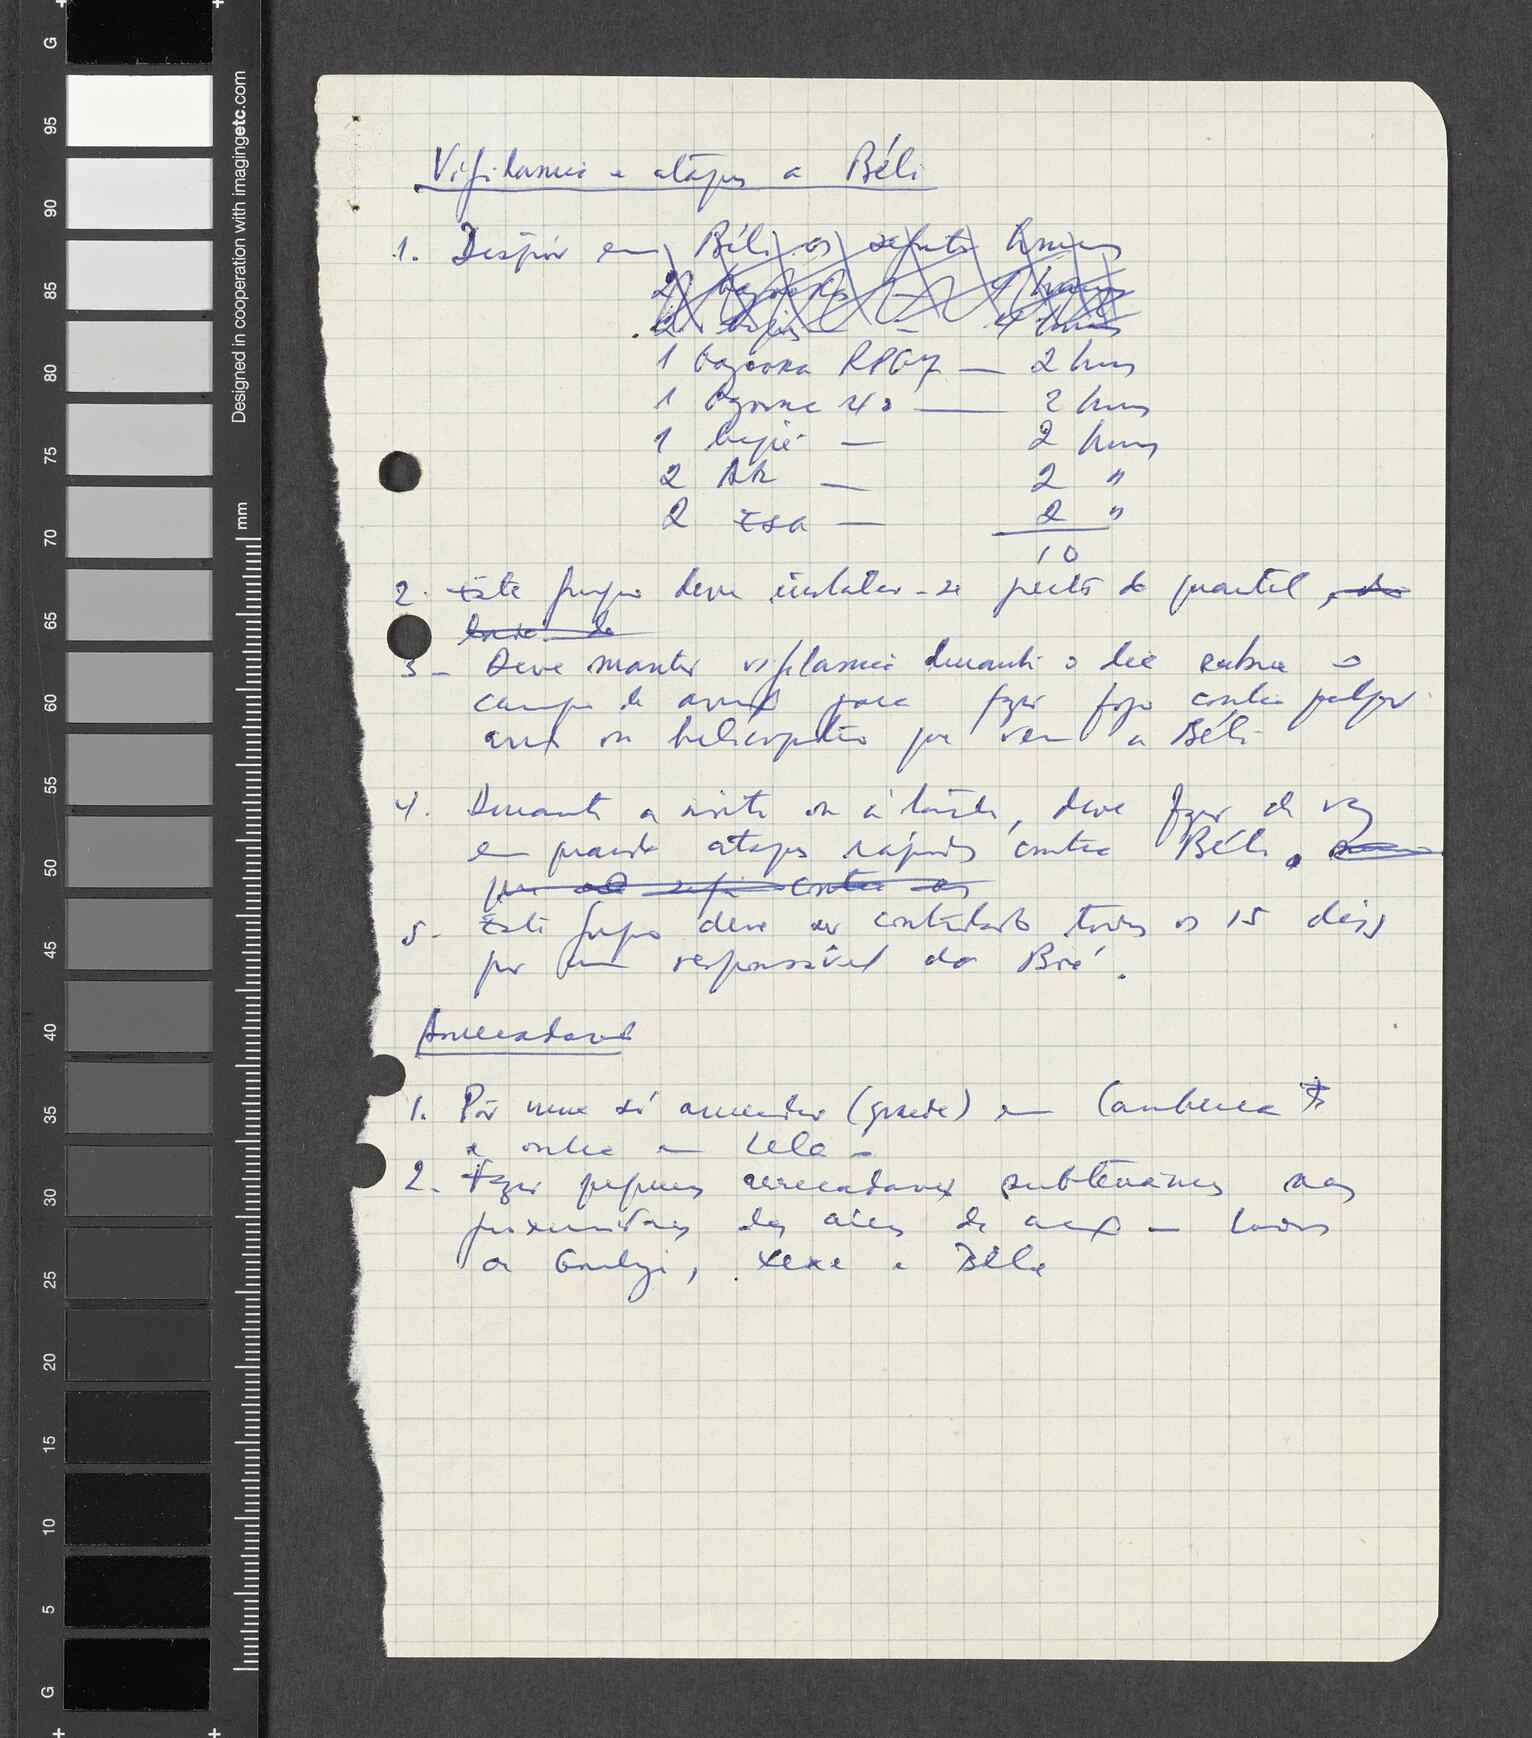 G
95
90
85
80
75
70
65
60
55
50
45
40
35
30
25
20
15
10
5
G
Designed in cooperation with imagingetc.com
mm
Vigilancia e ataques a Béli
1. Dispôr em Béli os seguintes homens
2 bazookas — 4 homens
2 — 4 homens
1 bazooka RPG7 — 2 hms
1 bazooka — 2 hms
1 bipé — 2 hms
2 AK — 2 "
2 — 2 "
10
2. Este grupo deve instalar-se perto do quartel,
3 - Deve manter vigilancia durante o dia sobre o
campo de para fazer fogo contra qualquer
ou helicoptero que vem a Béli
4. Durante a noite ou à tarde, deve fazer de vez
em quando ataques rápidos contra Béli.
que contra os
5. Este grupo deve ser controlado todos os 15 dias
por um responsável do Boé.
1. Pôr uma só (grande) em
e outra em Lela
2. Fazer pequenas subterrâneas nas
proximidades das de